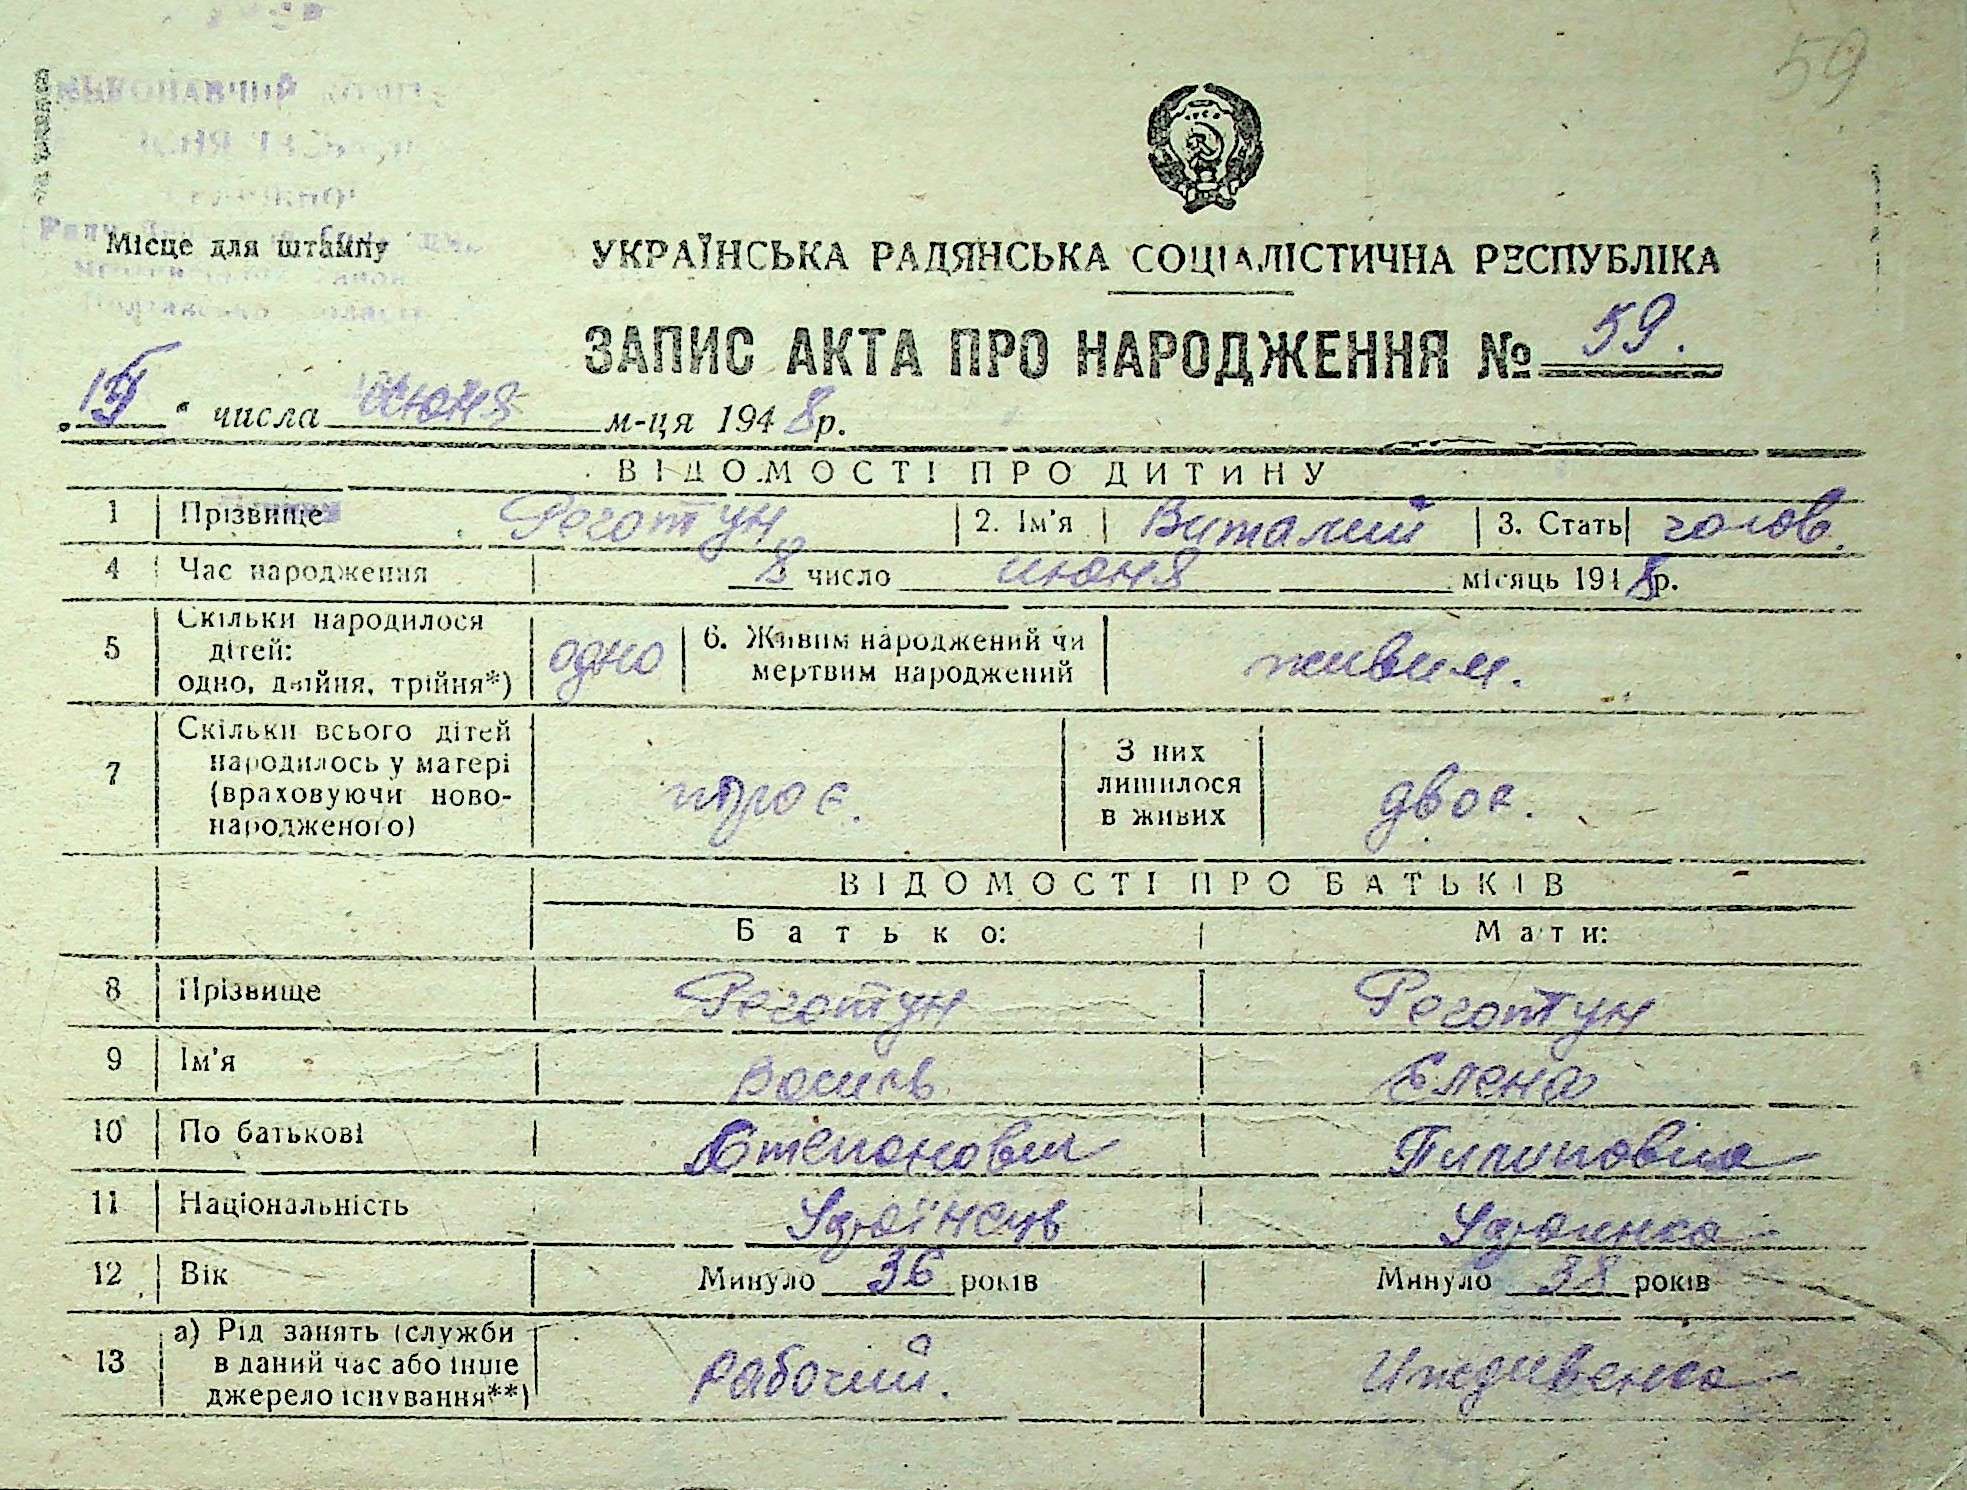 59
Місце для штампу
УКРАЇНСЬКА РАДЯНСЬКА СОЦІАЛІСТИЧНА РЕСПУБЛІКА
ЗАПИС АКТА ПРО НАРОДЖЕННЯ № 59.
числа июня м-ця 1948р.
ВІДОМОСТІ ПРО ДИТИНУ
1 Прізвище Реготун 2. Ім'я Виталий 3. Стать чолов.
4 Час народження 8 число июня місяць 1948р.
5 Скільки народилося
дітей:
одно, двійня, трійня*) одно 6. Живим народжений чи
мертвим народжений живим.
7 Скільки всього дітей
народилось у матері
(враховуючи ново-
народженого) троє.
З них
лишилося
в живих двоє.
ВІДОМОСТІ ПРО БАТЬКІВ
Батько: Мати:
8 Прізвище Реготун Реготун
9 Ім'я Василь Елена
10 По батькові Степанович Пилиповна
11 Національність Українець Украинка
12 Вік Минуло 36 років Минуло 38 років
13 а) Рід занять (служби
в даний час або інше
джерело існування**) Рабочий. Иждивенка